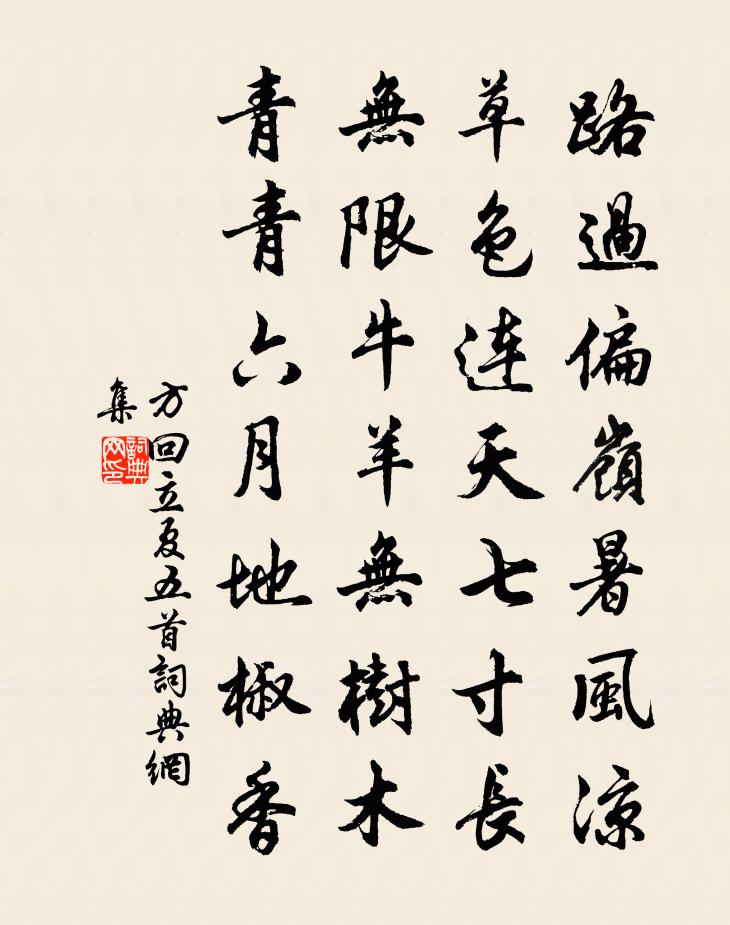 路過偏嶺暑風凉
草色連天七寸長
無限牛羊無樹木
青青六月地椒香
方回立夏五首詞典網
集
詞典
网印